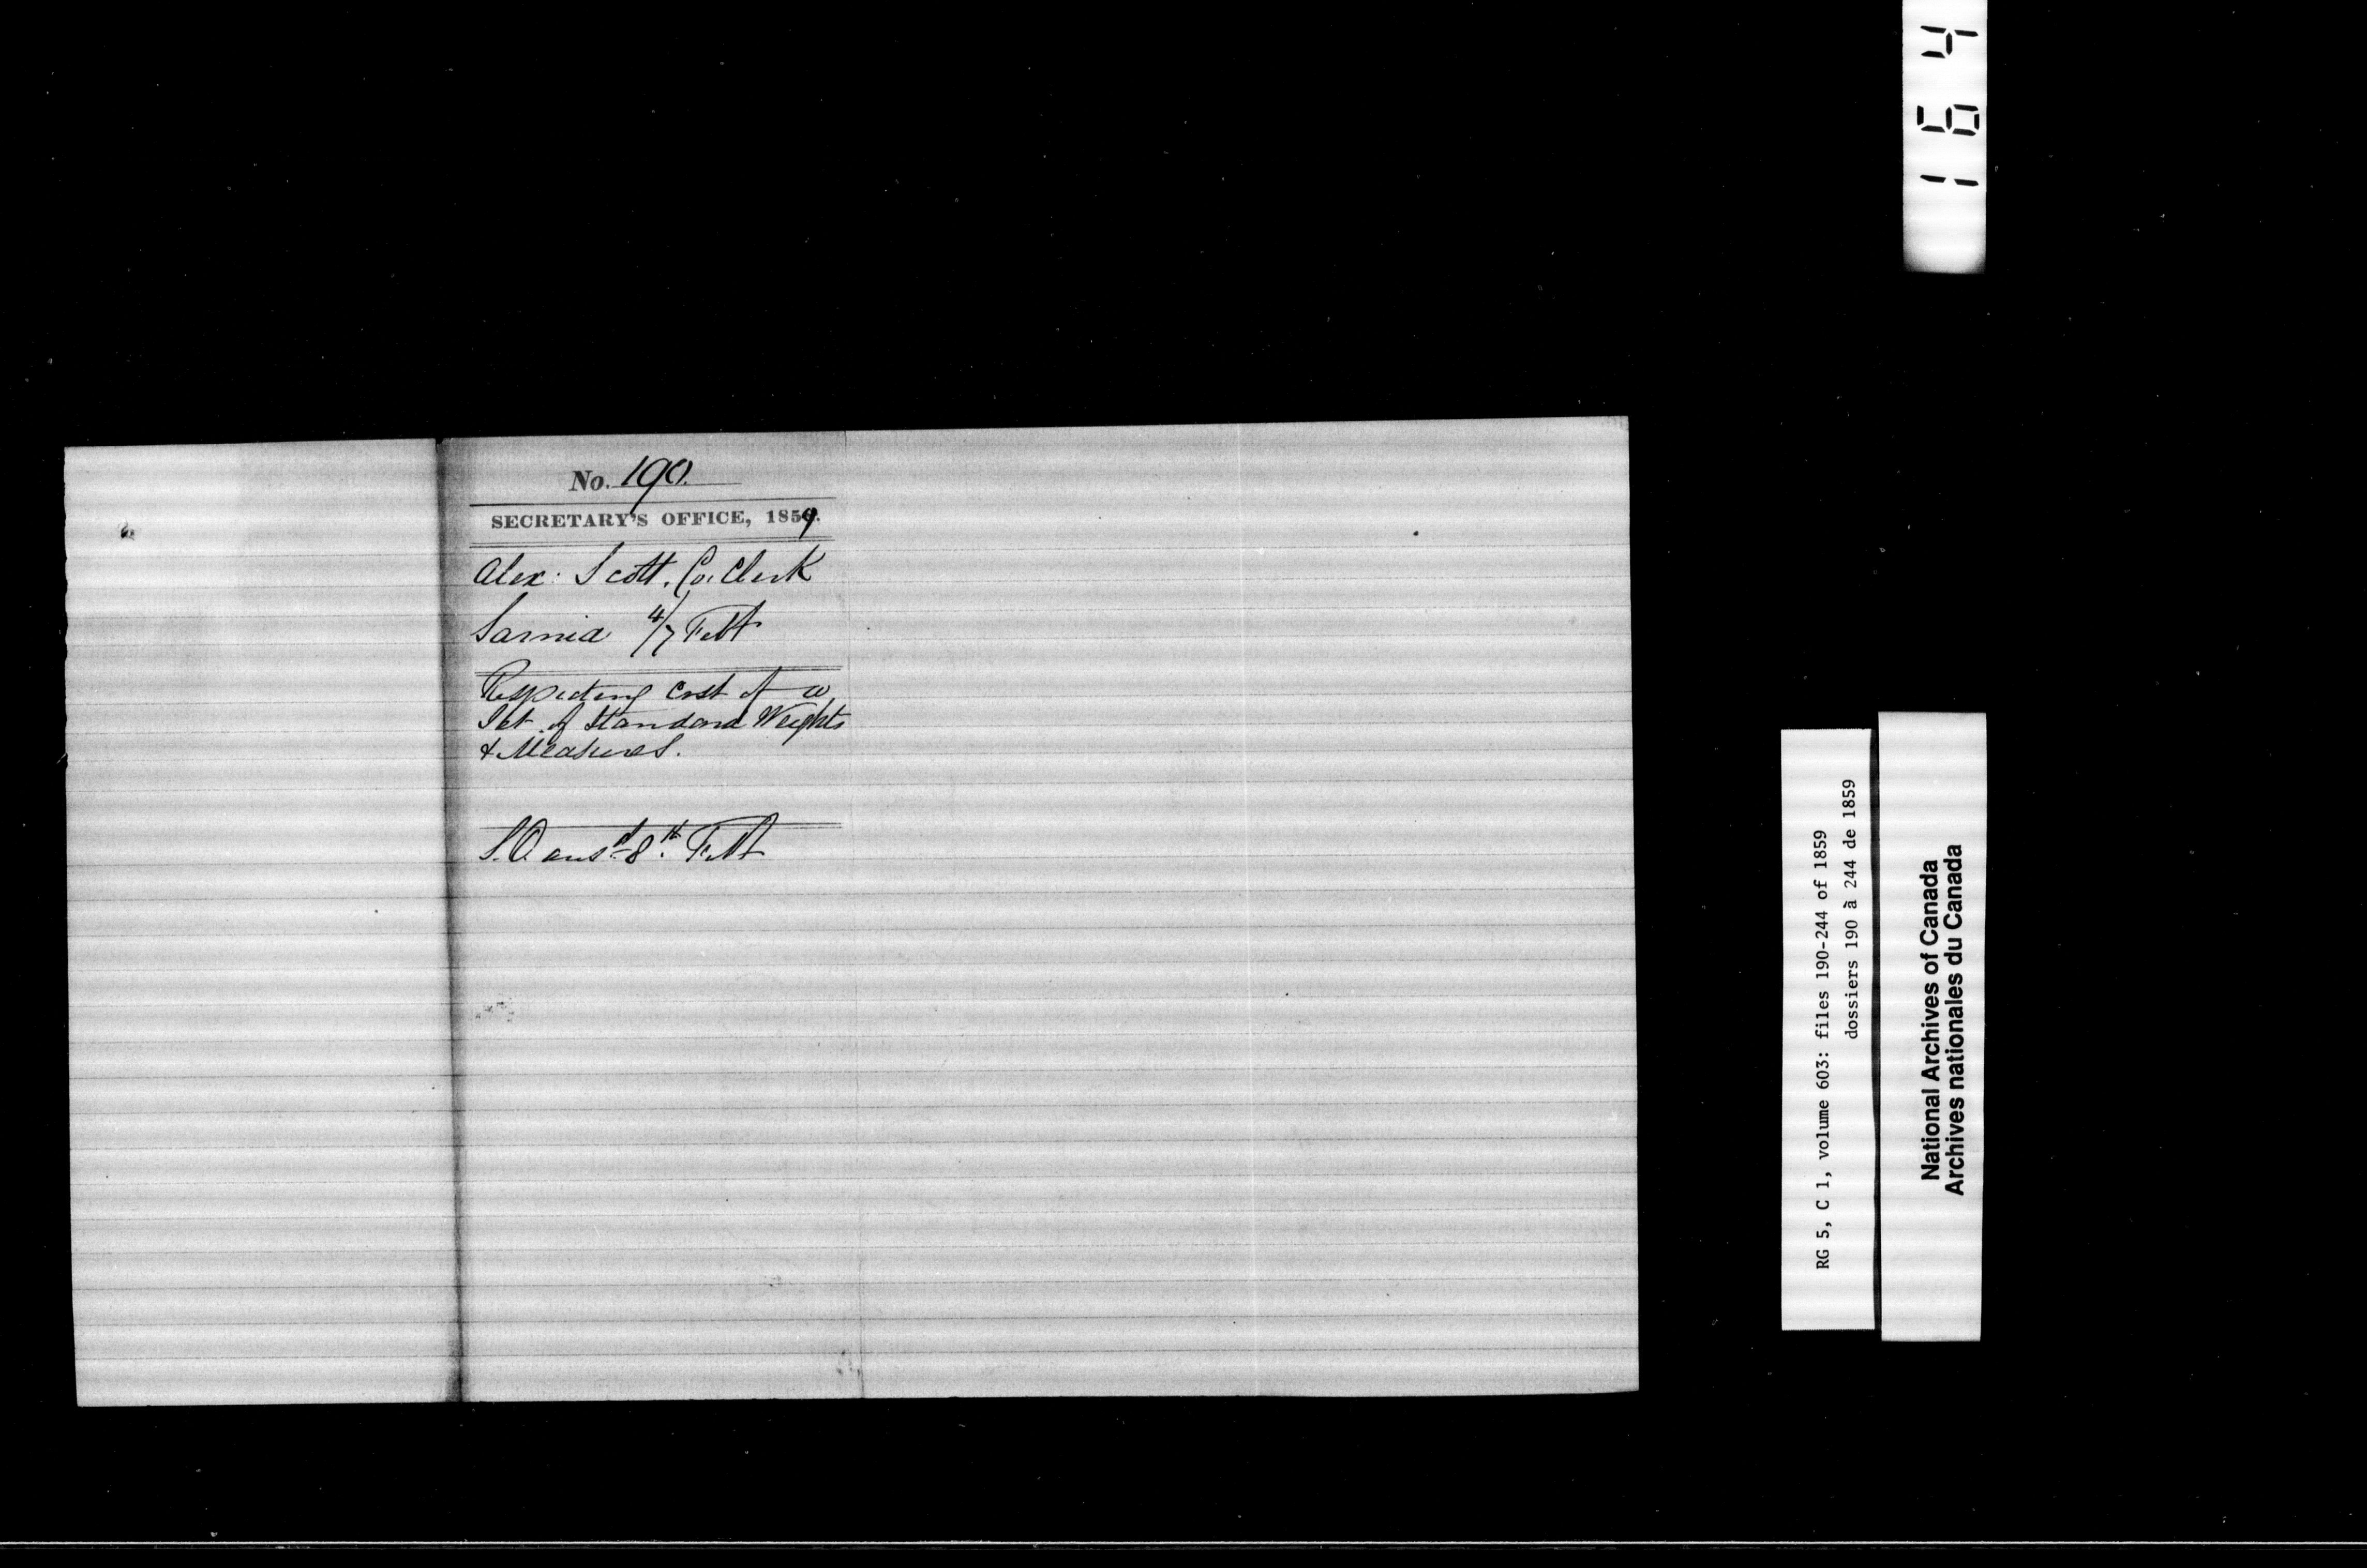 No. 190.
SECRETARY'S OFFICE, 1859.
Alex: Scott, Co. Clerk
Sarnia 4/7 Feb
Respecting cost of a
Set of Standard Weights
& Measures.
S.O. ansd 8th Feb
164
RG 5, C 1, volume 603: files 190-244 of 1859
dossiers 190 à 244 de 1859
National Archives of Canada
Archives nationales du Canada